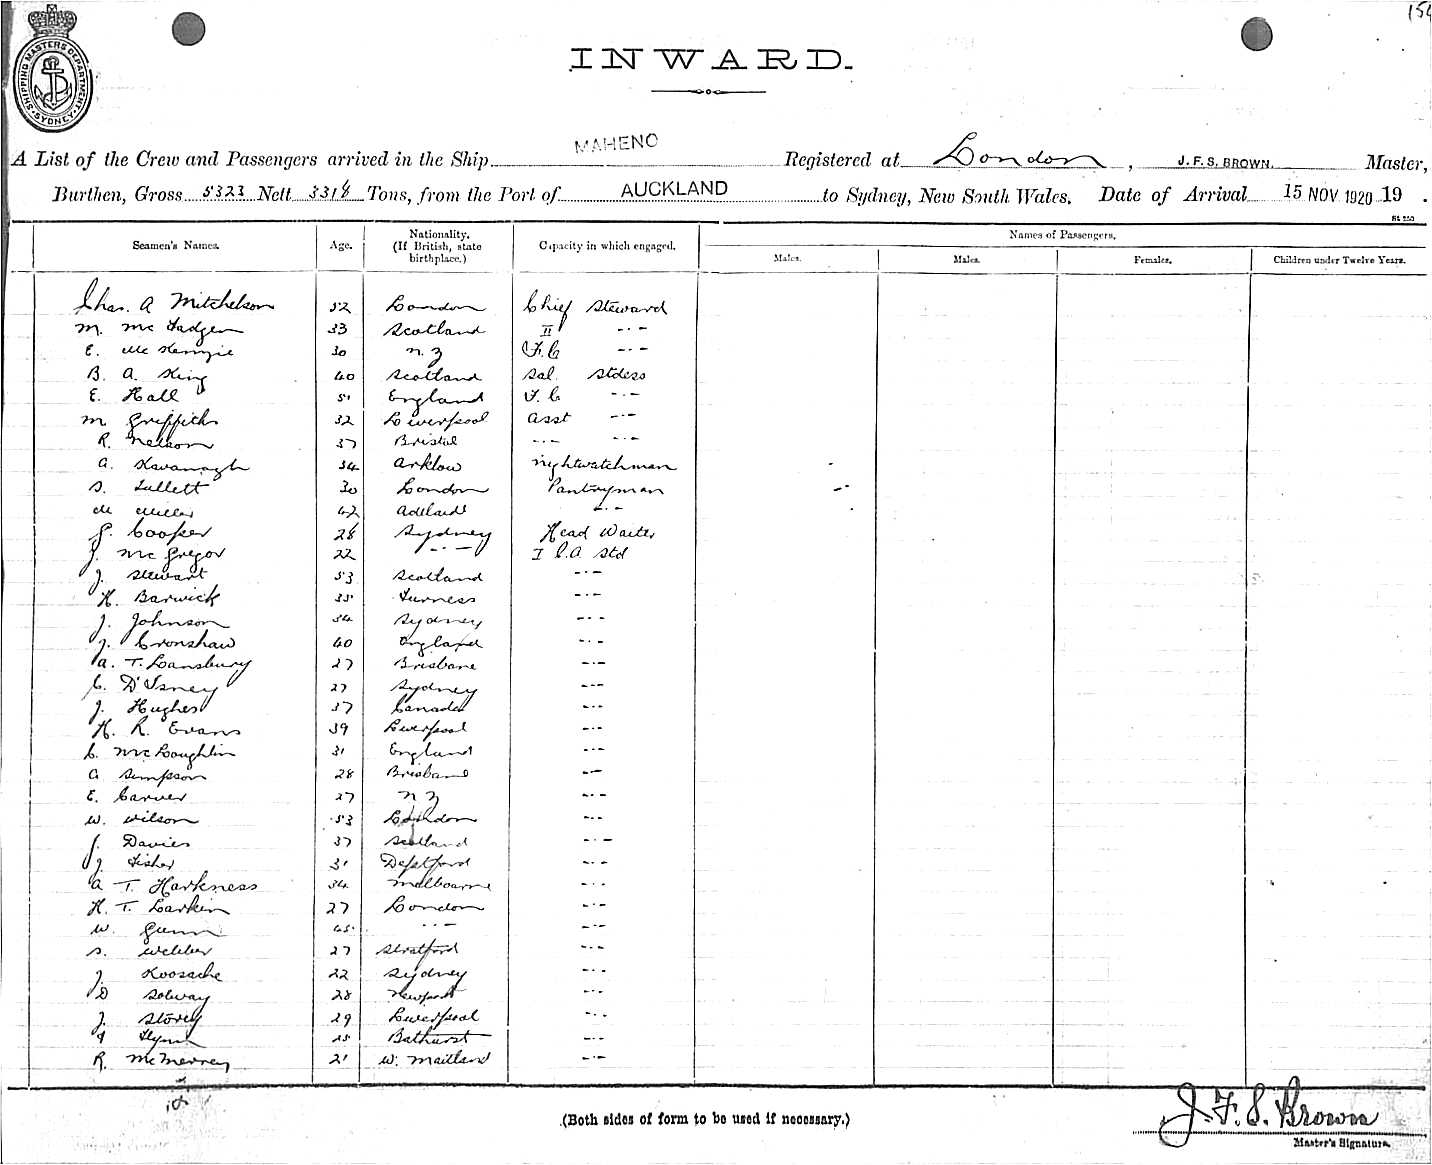 154
SHIPPING MASTERS DEPARTMENT SYDNEY
INWARD.
A List of the Crew and Passengers arrived in the Ship MAHENO Registered at London, J. F. S. BROWN. Master,
Burthen, Gross 5323 Nett 3318 Tons, from the Port of AUCKLAND to Sydney, New South Wales. Date of Arrival 15 NOV 1920 19 .
Seamen's Names. Age. Nationality. (If British, state birthplace.) Capacity in which engaged. Names of Passengers.
Males. Males. Females. Children under Twelve Years.
Chas. A Mitchelson 52 London Chief Steward
M. McFadgen 33 Scotland II -·-
E. McKenzie 30 N.Z F.C -·-
B. A. King 40 Scotland Sal Stdess
E. Hall 51 England F.C -·-
M. Griffiths 32 Liverpool Asst -·-
R. Nelson 37 Bristol -·- -·-
A. Kavanagh 34 Arklow Nightwatchman
S. Tullett 30 London Pantryman
M Miller 42 Adelaide -·-
J. Cooper 28 Sydney Head Waiter
J. McGregor 22 -·- I C.A Std
J. Stewart 53 Scotland -·-
H. Barwick 35 Furness -·-
J. Johnson 34 Sydney -·-
J. Cronshaw 40 England -·-
A. T. Lansbury 27 Brisbane -·-
C. D'Isney 27 Sydney -·-
J. Hughes 37 Canada -·-
H. R. Evans 39 Liverpool -·-
C. McLoughlin 31 England -·-
A Simpson 28 Brisbane -·-
E. Carver 27 N Z -·-
W. Wilson 53 London -·-
J. Davies 37 Scotland -·-
J. Fisher 31 Deptford -·-
A T. Harkness 34 Melbourne -·-
H. T. Larkin 27 London -·-
W. Gunn 45 -·- -·-
S. Webber 27 Stratford -·-
J. 22 Sydney -·-
D Solway 28 Newport -·-
J. Storey 29 Liverpool -·-
Flynn 25 Bathurst -·-
R. McMerrey 21 W. Maitland -·-
(Both sides of form to be used if necessary.)
J. F. S. Brown
Master's Signature.